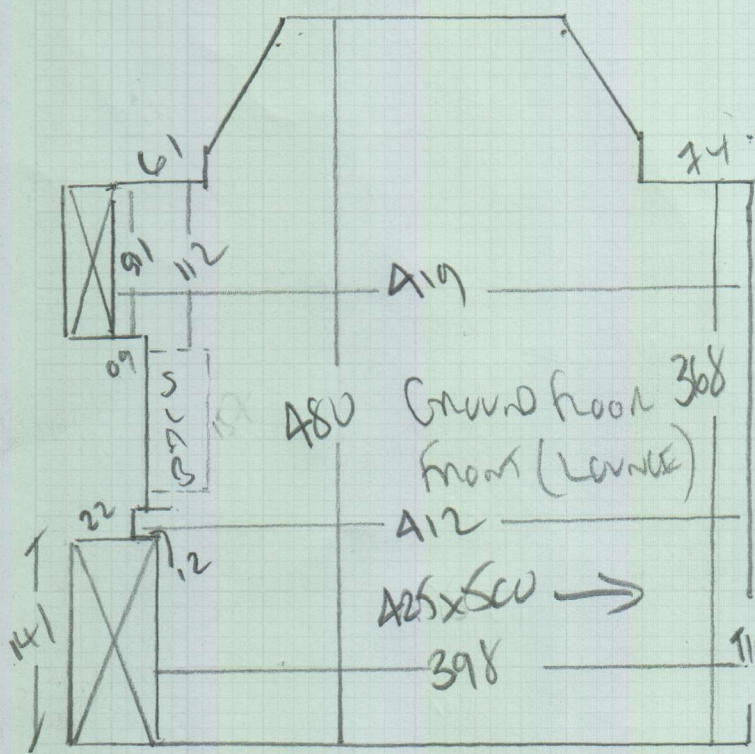 61
74
91
112
419
09
480
Ground Floor
Front (Lounge)
368
22
412
12
425x500 →
141
398